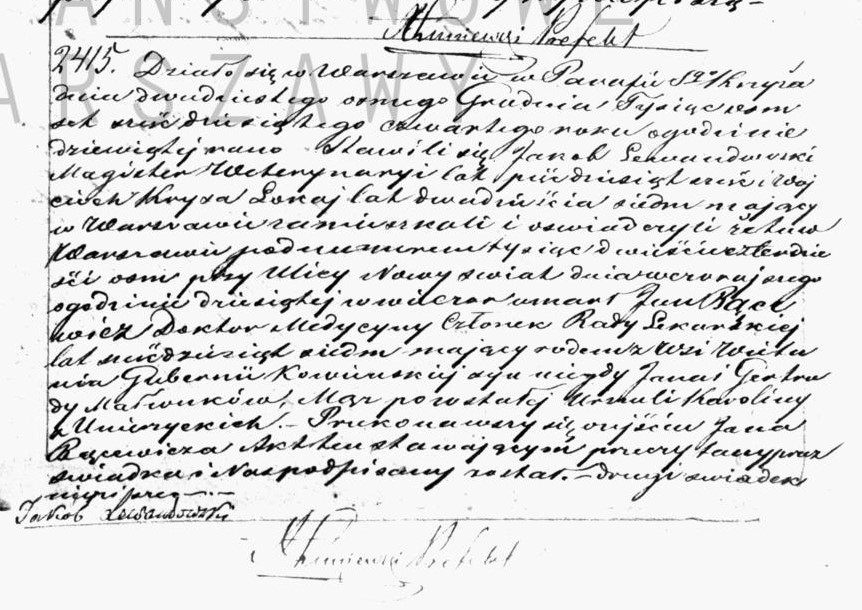 PAŃSTWOWE
WARSZAWY
Prefekt
2415. Działo się w Warszawie w Parafii Sgo Krzyża
dnia dwudziestego osmego Grudnia Tysiąc osm
set sześćdziesiątego czwartego roku o godzinie
dziewiątej rano Stawili się Jakob Lewandowski
Magister Weterynaryi lat pięćdziesiąt sześć i Woj
ciech Krysa Lokaj lat dwadzieścia siedm mający
w Warszawie zamieszkali i oswiadczyli że tu w
Warszawie pod numerem tysiąc dwieście czterdzie
ści osm przy Ulicy Nowy Swiat dnia wczorajszego
o godzinie dziesiątej w wieczor umarł Jan Rące
wicz Doktor Medycyny Członek Rady Lekarskiej
lat sześćdziesiąt siedm mający rodem z Wsi
nia Gubernii Kowieńskiej syn niegdy Jana i Gertru
dy Małżonków, Mąż pozostałej Urszuli Karoliny
z - Przekonawszy się o zejściu Jana
Rącewicza Akt ten stawającym przeczytany przez
swiadka i Nas podpisany został. - drugi swiadek
Jakob Lewandowski
Prefekt